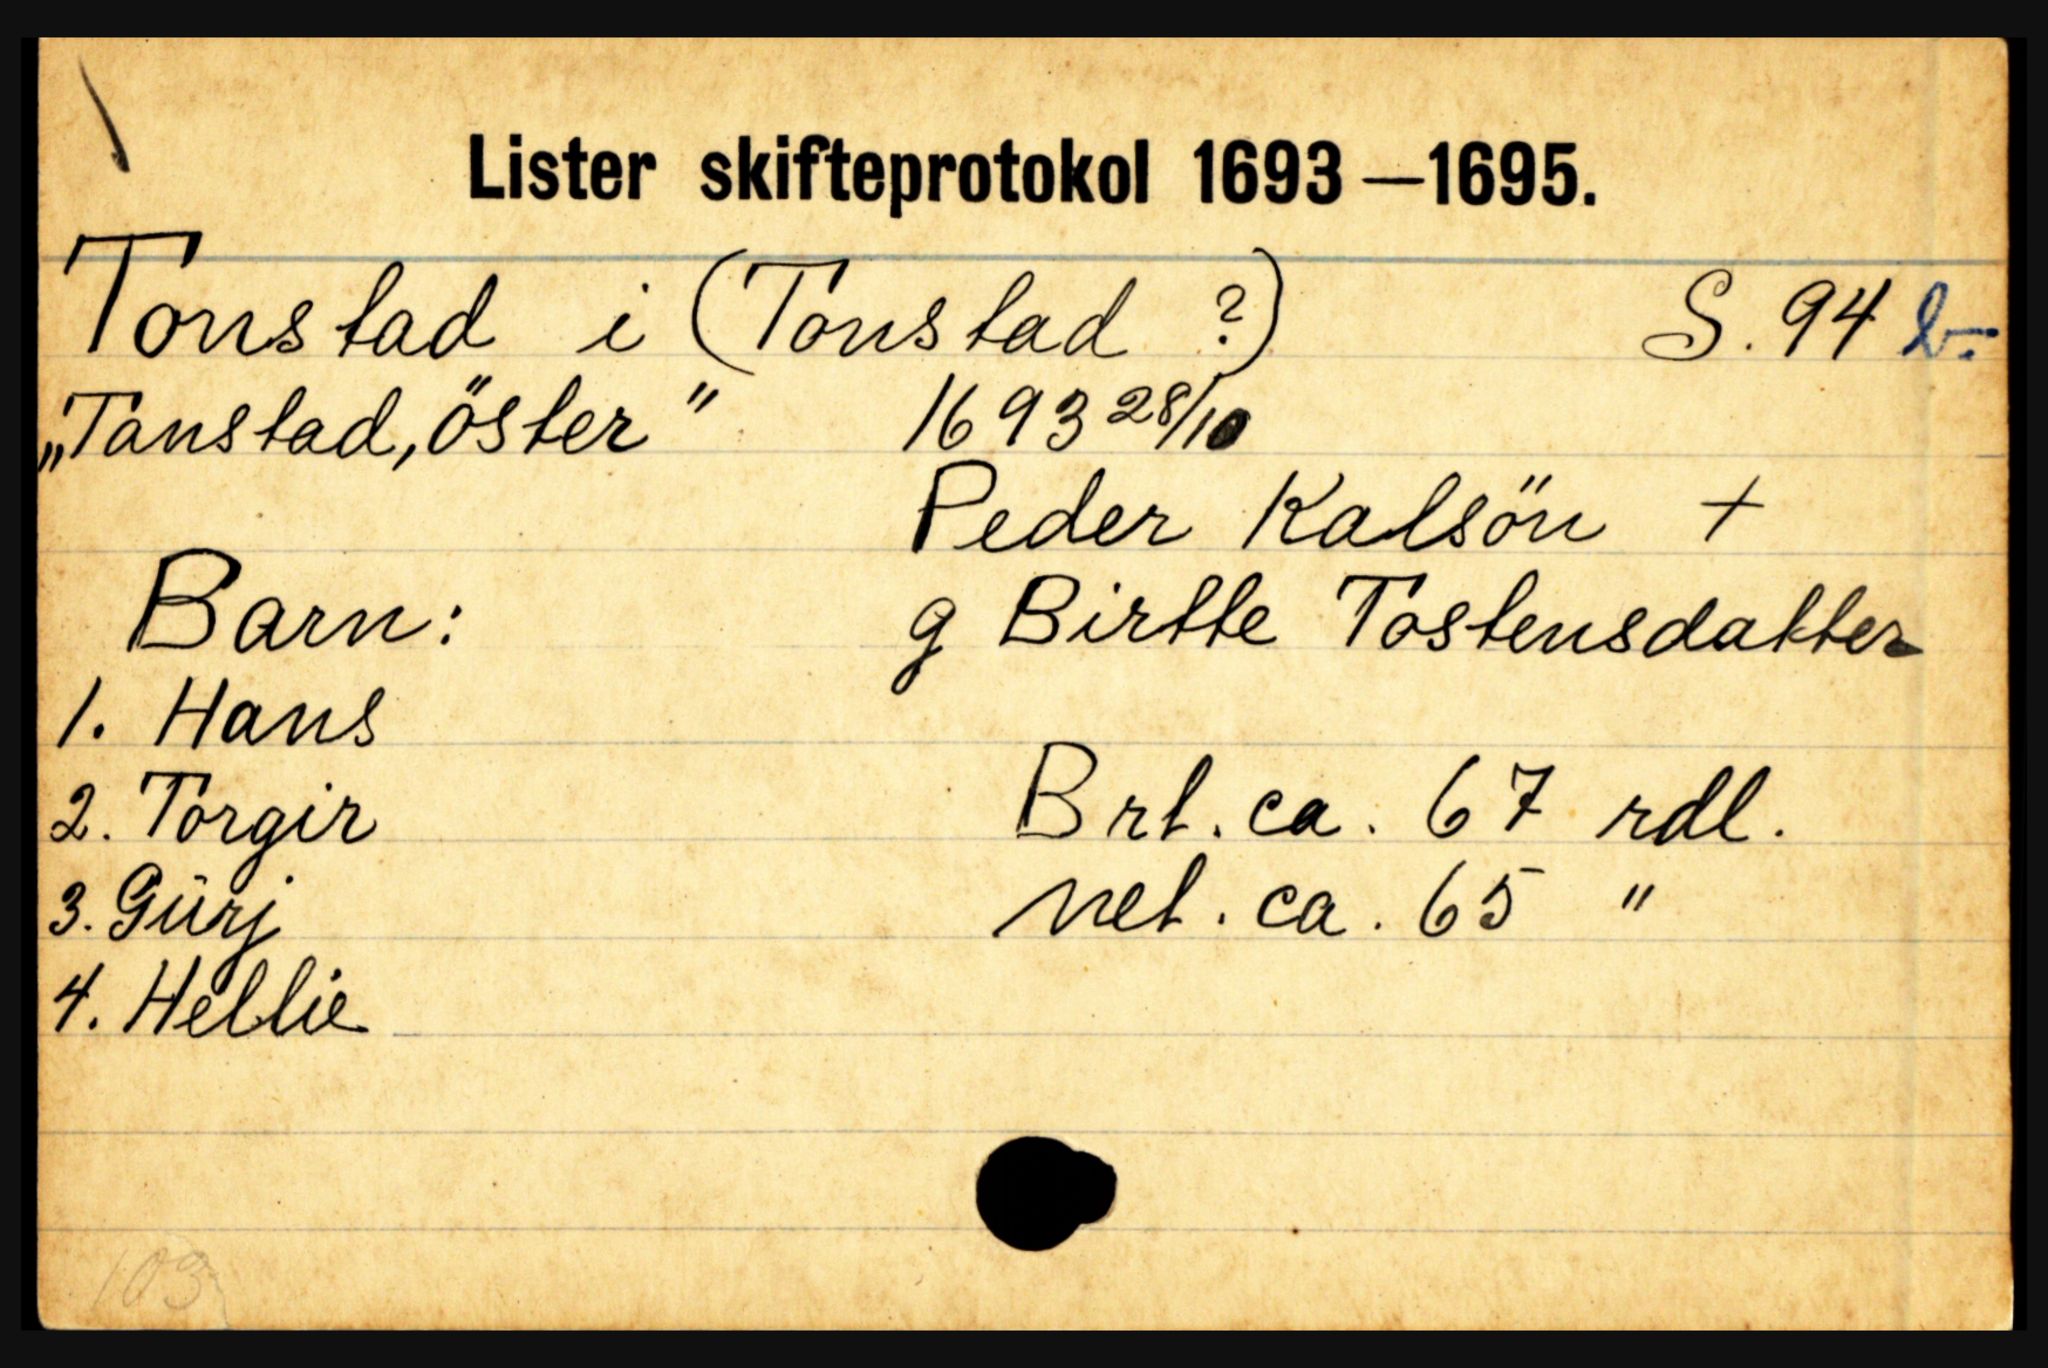 Lister skifteprotokol 1693—1695.
Tonstad i (Tonstad ?) S. 94 b.
„Tanstad, öster" 1693 28/10
Peder Kalsön +
Barn: g Birtte Tostensdatter
1. Hans
2. Torgir Brt. ca. 67 rdl.
3. Gūrj net. ca. 65 "
4. Hellie
103